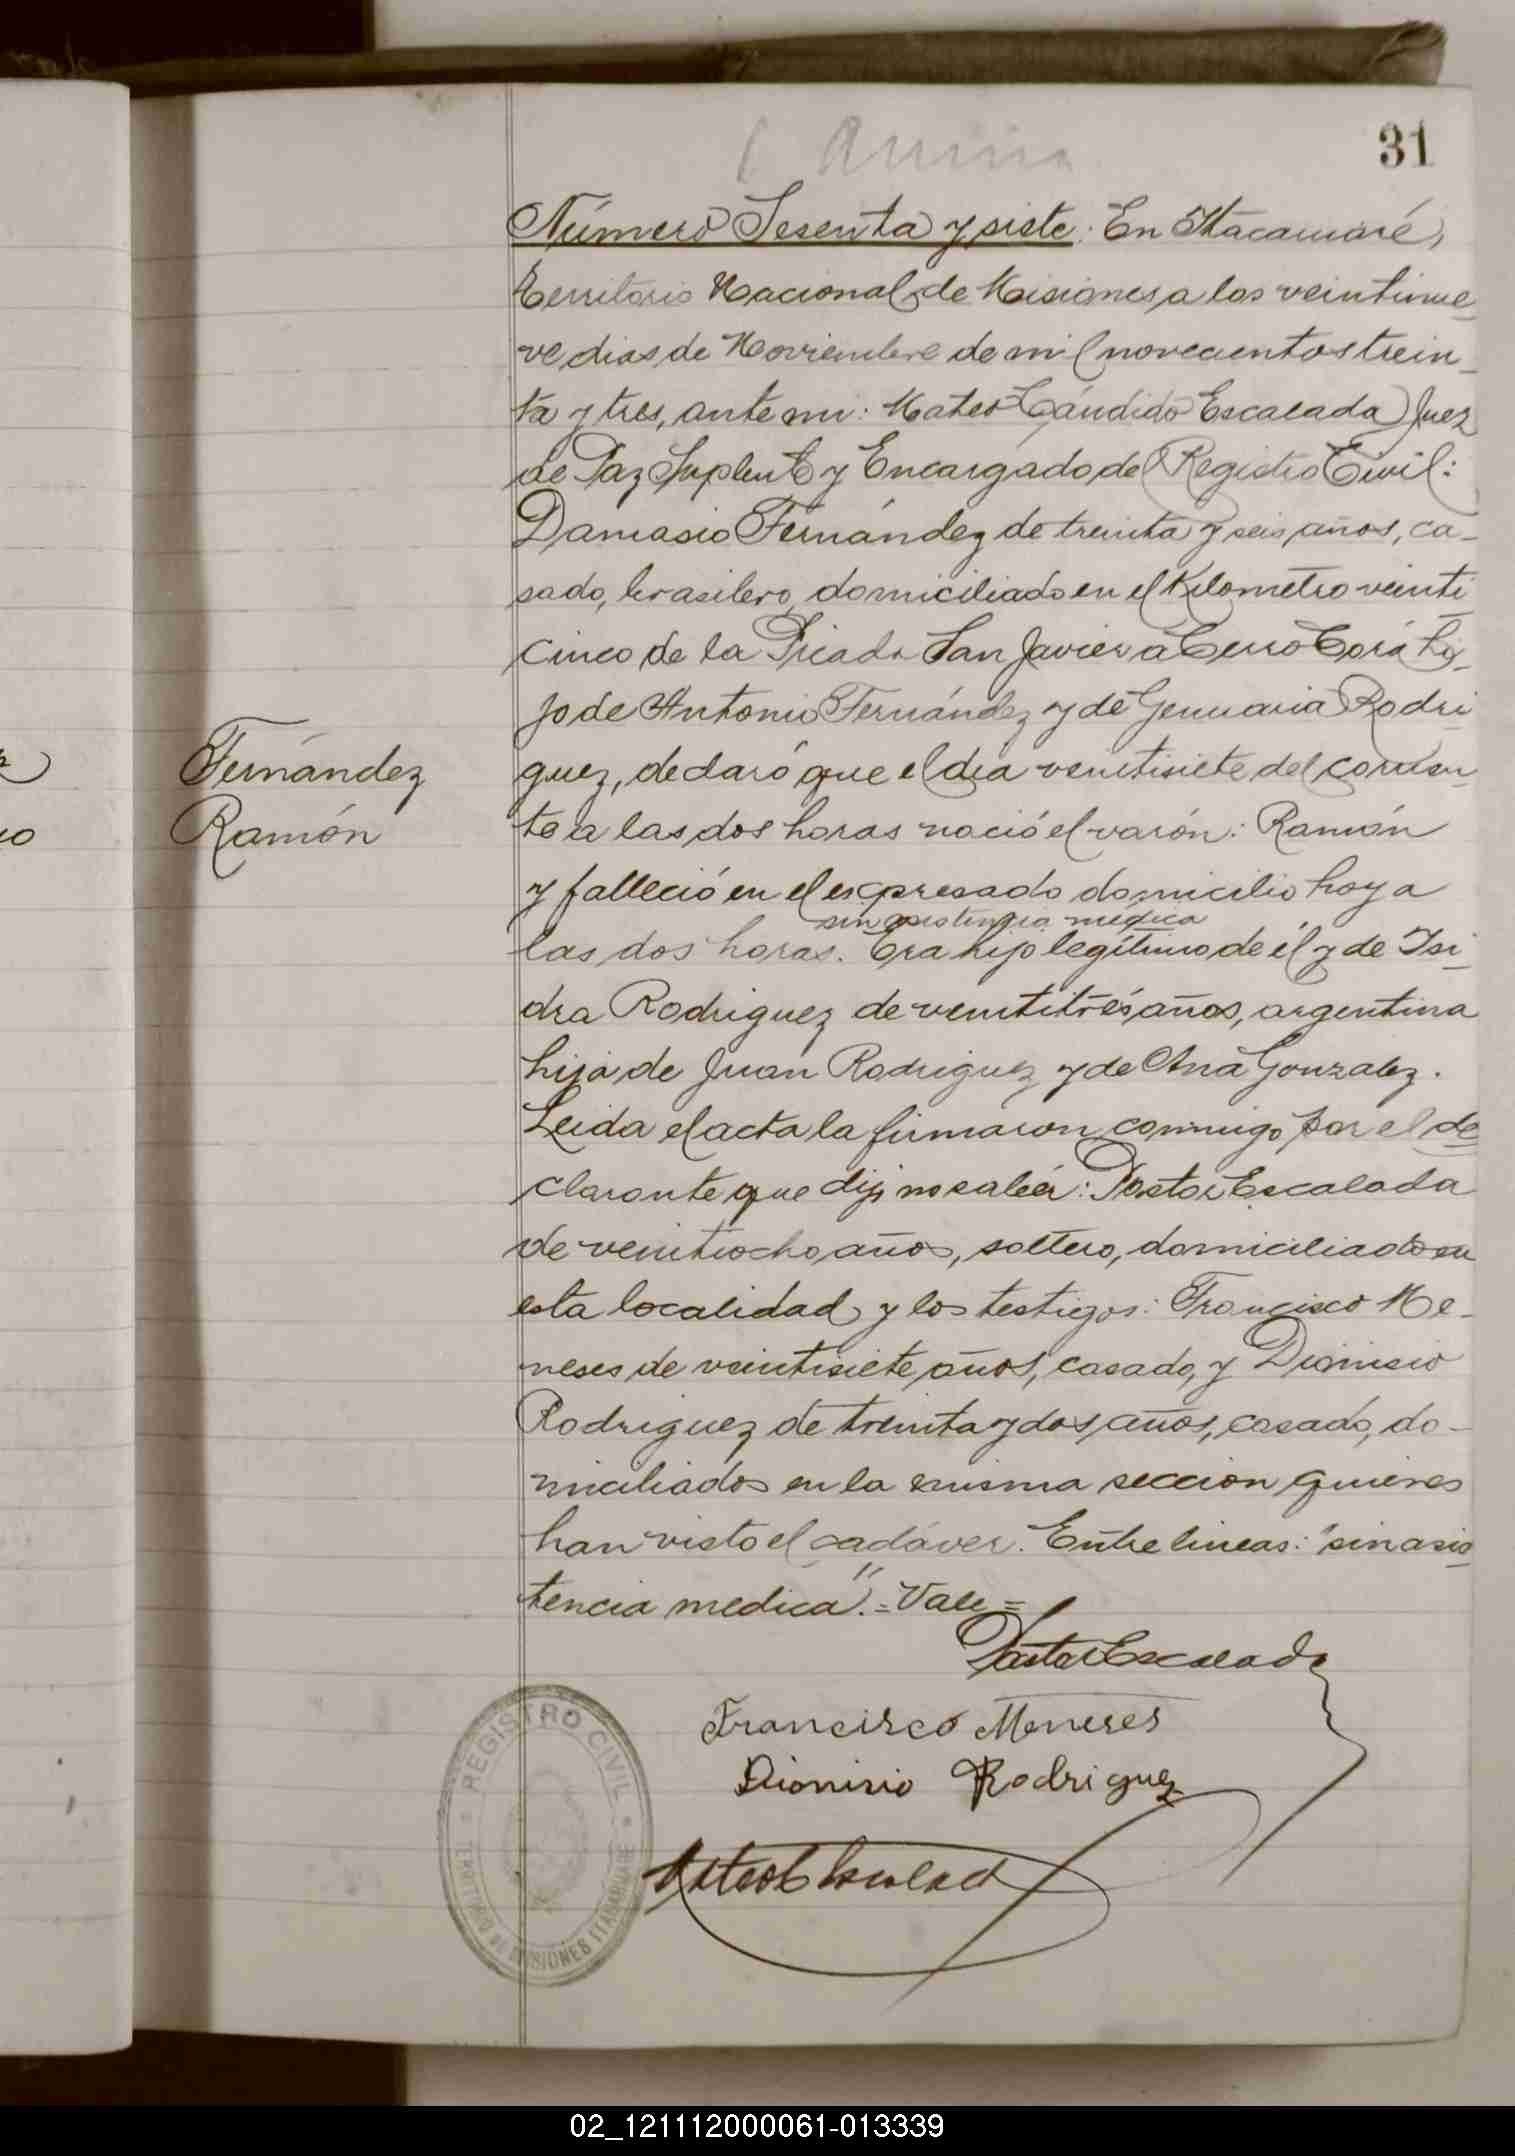 31
Número Sesenta y siete: En Itacaruaré,
Territorio Nacional de Misiones, a los veintinue_
ve dias de Noviembre de mil novecientos trein_
ta y tres, ante mi: Mateo Cándido Escalada Juez
de Paz Suplente y Encargado del Registro Civil:
Damasio Fernández de treinta y seis años, ca_
sado, brasilero, domiciliado en el Kilometro veinti
cinco de la Picada San Javier a Cerro Corá hi_
jo de Antonio Fernández y de Genuaria Rodri
guez, declaró que el dia veintisiete del corrien_
te a las dos horas nació el varón: Ramón
Fernández
Ramón
y falleció en el expresado domicilio hoy a
sin asistencia médica
las dos horas. Era hijo legítimo de él y de Isi_
dra Rodriguez de veintitrés años, argentina
hija de Juan Rodriguez y de Ana Gonzalez.
Leida el acta la firmaron conmigo por el de
clarante que dijo no saber: Pastor Escalada
de veintiocho años, soltero, domiciliado en
esta localidad y los testigos: Francisco Me_
neses de veintisiete años, casado, y Dionisio
Rodriguez de treinta y dos años, casado, do_
miciliados en la misma seccion quienes
han visto el cadáver. Entre lineas: "sin asis
tencia medica".=Vale=
Pastor Escalada
Francisco Meneses
Dionisio Rodriguez
Mateo C Escalada
REGISTRO CIVIL
TERRITORIO DE MISIONES ITACARUARE
02_121112000061-013339